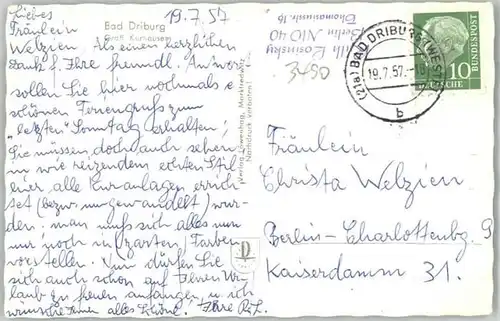 Liebes
19.7.57
Fräulein
Bad Driburg
Gräfl. Kurhausem
Welzien! Als einen herzlichen
Dank f. Ihre freundl. Antwort
sollen Sie hier nochmals e.
schönen Feriengruß zum
"letzten" Sonntag erhalten!
Sie müssen doch auch sehen
in wie reizendem echten Stil
hier alle Kuranlagen errich-
tet (bezw. umgewandelt) wur-
den: man muß sich alles nun
nur noch in zarten Farben
vorstellen. Nun dürfen Sie
sich auch schon auf Ihren Ur-
laub zu freuen anfangen u. ich
wünsche Ihnen alles Schöne! Ihre R.L.
Verlag Löwenhag, Marktredwitz
Nachdruck verboten!
Losinsky
Berlin NO 40
Thomasiusstr. 16
3490
(21a) BAD DRIBURG (WESTF)
19.7.57.-18
b
10
DEUTSCHE
BUNDESPOST
Fräulein
Christa Welzien
Berlin-Charlottenbg. 9
Kaiserdamm 31.